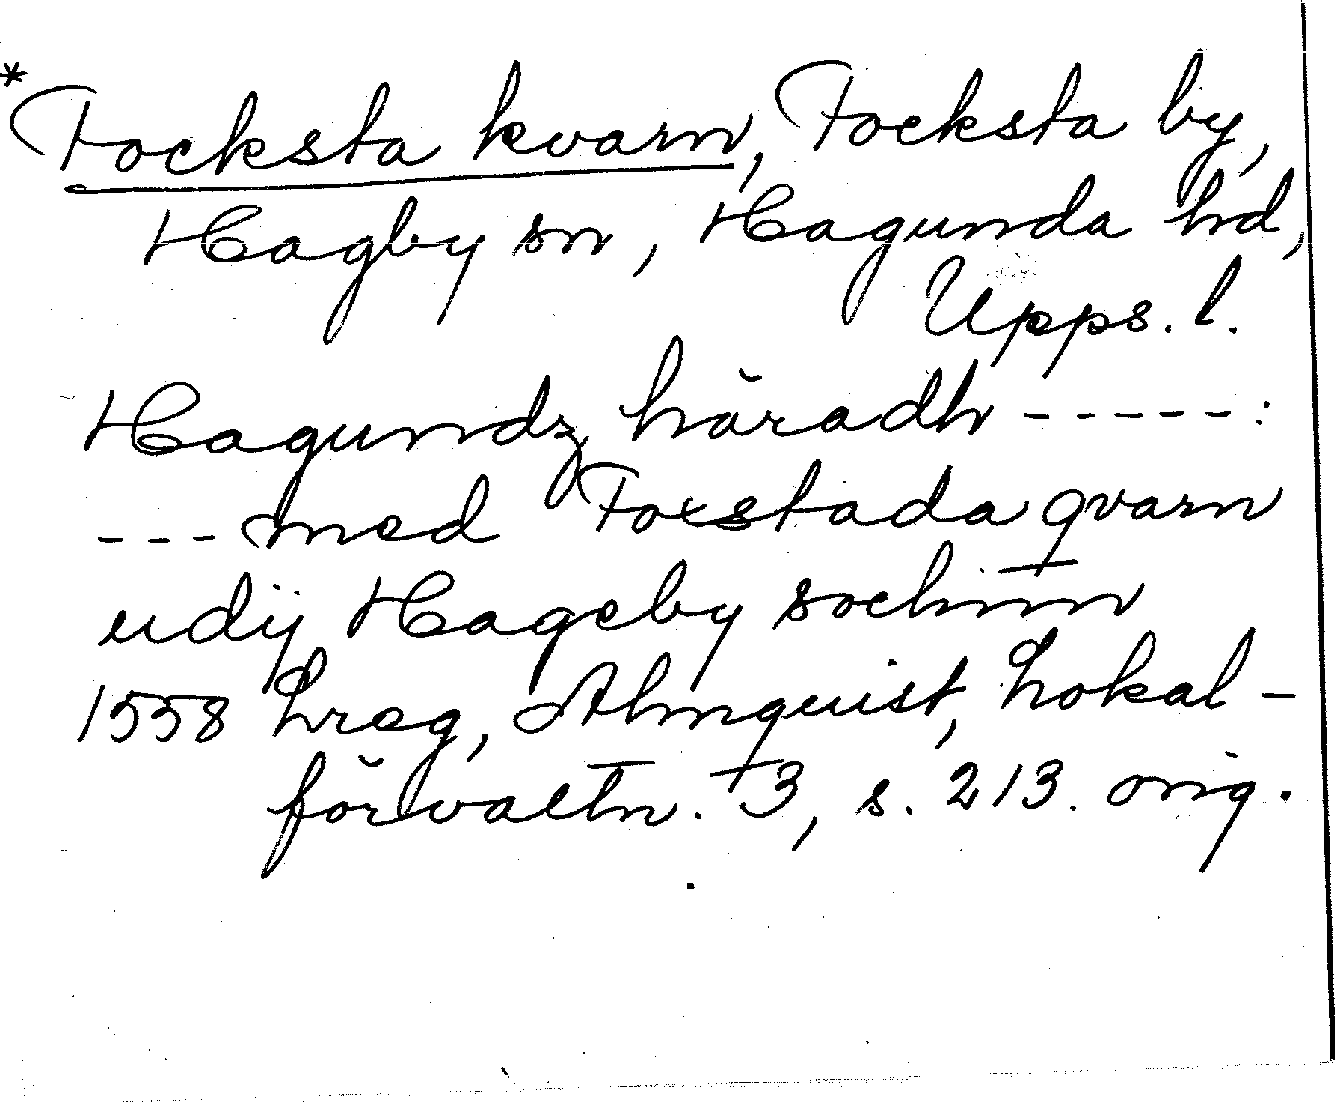 *Focksta kvarn, Focksta by,
Hagby sn, Hagunda hd,
Upps. l.
Hagundz häradh -----:
--- med Foxstada qvarn
udij Hageby sochnn
1558 Lreg, Almquist, Lokal-
förvaltn. 3, s. 213. orig.